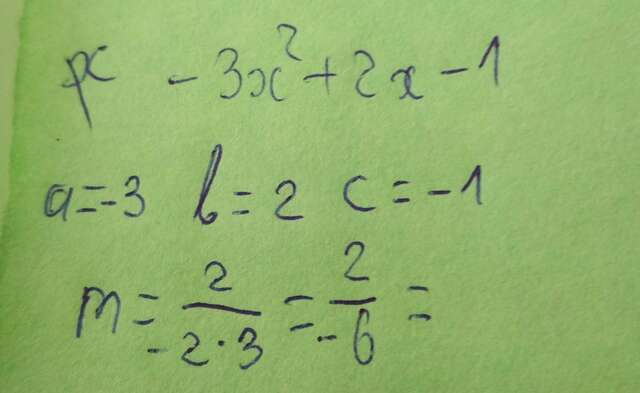 -3x²+2x-1
a=-3 b=2 c=-1
m= 2/-2·3 = 2/-6 =